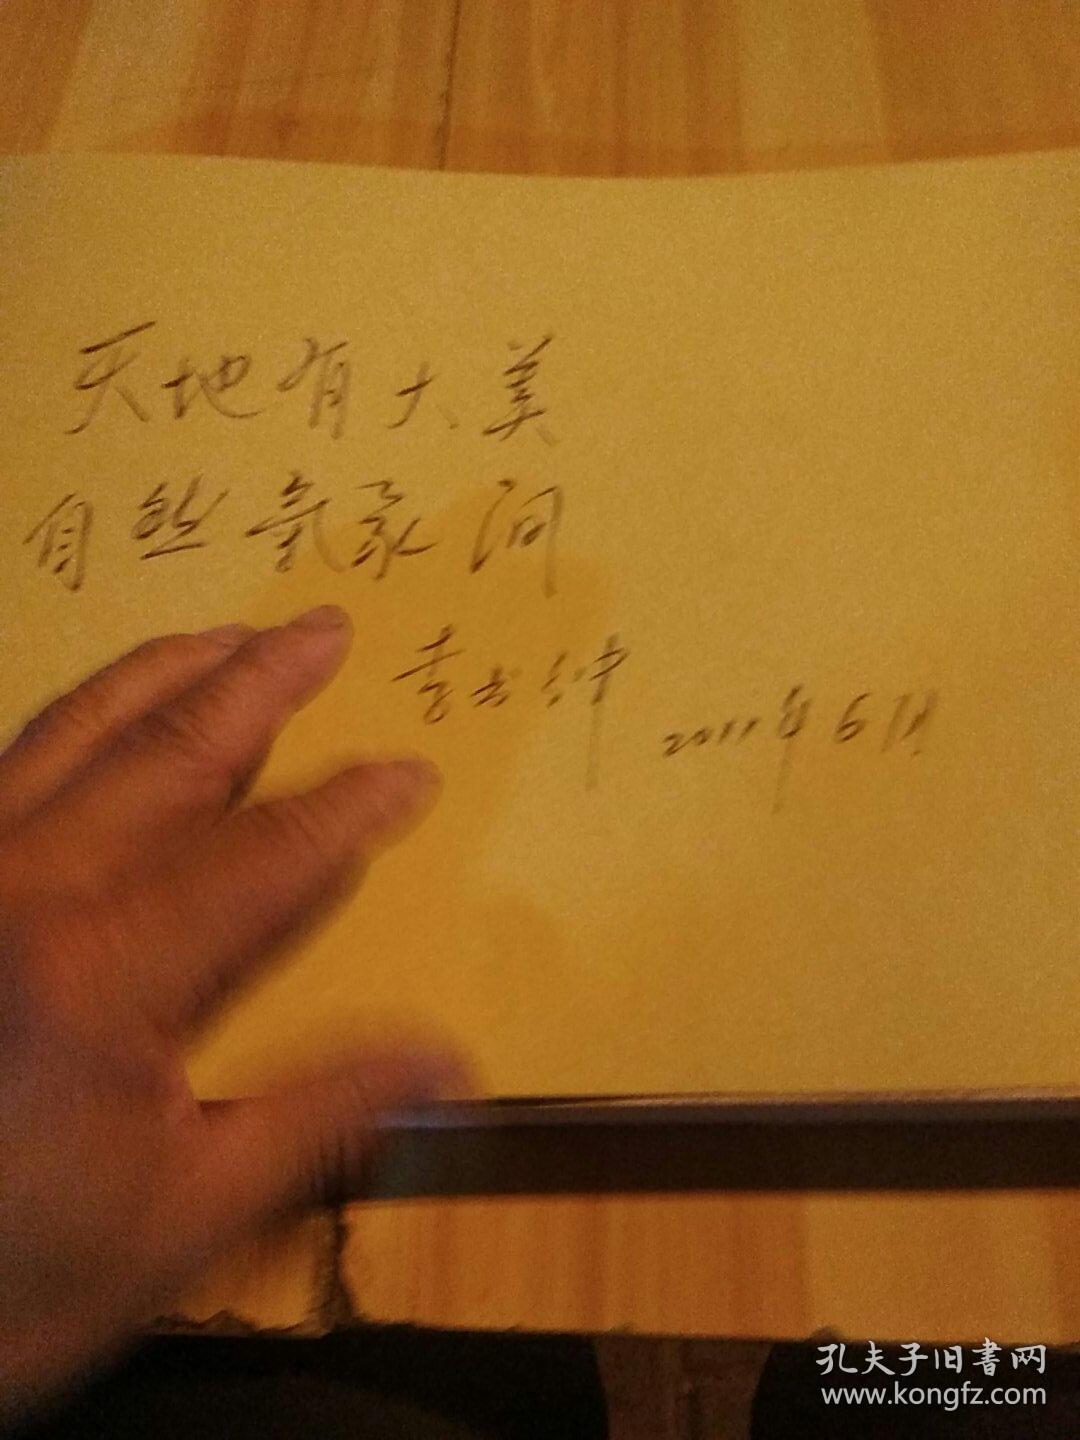 天地有大美
自然氣象间
2011年6月
孔夫子旧書网
www.kongfz.com